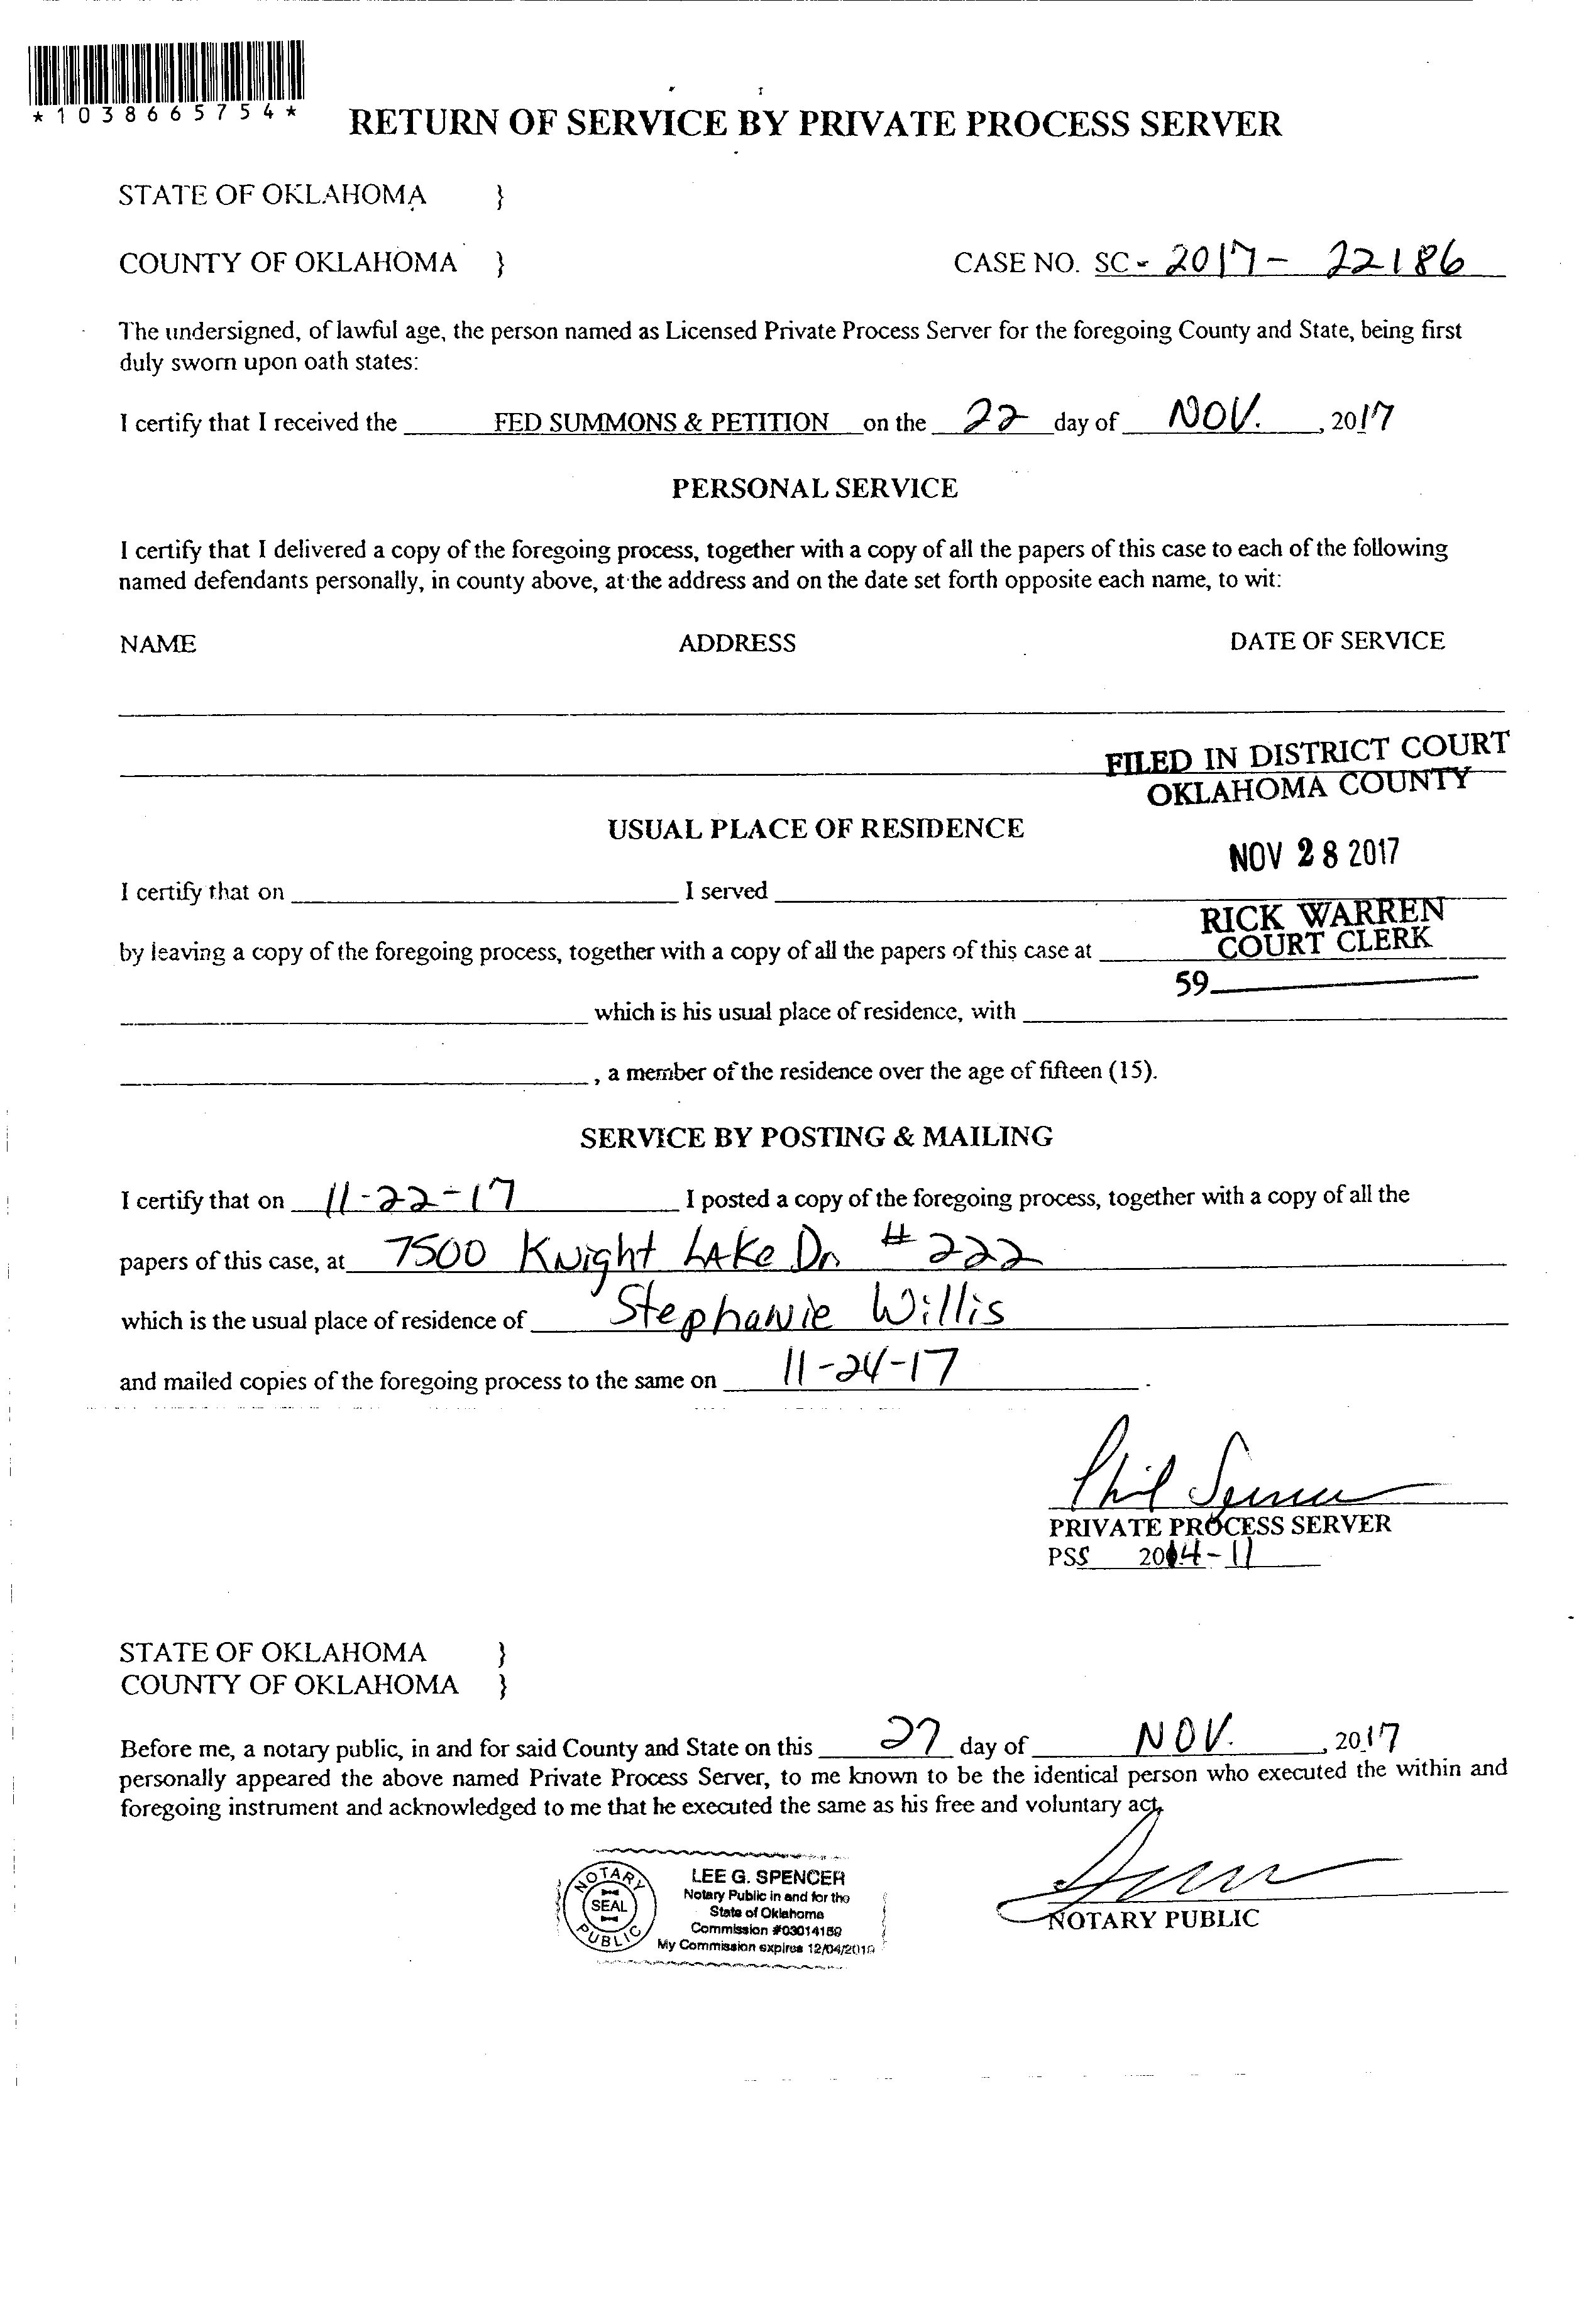 *1038665754*
RETURN OF SERVICE BY PRIVATE PROCESS SERVER
STATE OF OKLAHOMA }
COUNTY OF OKLAHOMA } CASE NO. SC - 2017 - 22186
The undersigned, of lawful age, the person named as Licensed Private Process Server for the foregoing County and State, being first
duly sworn upon oath states:
I certify that I received the FED SUMMONS & PETITION on the 22 day of NOV. , 2017
PERSONAL SERVICE
I certify that I delivered a copy of the foregoing process, together with a copy of all the papers of this case to each of the following
named defendants personally, in county above, at the address and on the date set forth opposite each name, to wit:
NAME ADDRESS DATE OF SERVICE
FILED IN DISTRICT COURT
OKLAHOMA COUNTY
USUAL PLACE OF RESIDENCE
NOV 28 2017
I certify that on I served
RICK WARREN
COURT CLERK
by leaving a copy of the foregoing process, together with a copy of all the papers of this case at
59
which is his usual place of residence, with
, a member of the residence over the age of fifteen (15).
SERVICE BY POSTING & MAILING
I certify that on 11-22-17 I posted a copy of the foregoing process, together with a copy of all the
papers of this case, at 7500 Knight Lake Dr #222
which is the usual place of residence of Stephanie Willis
and mailed copies of the foregoing process to the same on 11-24-17 .
PRIVATE PROCESS SERVER
PSS 2014-11
STATE OF OKLAHOMA }
COUNTY OF OKLAHOMA }
Before me, a notary public, in and for said County and State on this 27 day of NOV. , 2017
personally appeared the above named Private Process Server, to me known to be the identical person who executed the within and
foregoing instrument and acknowledged to me that he executed the same as his free and voluntary act.
NOTARY PUBLIC
SEAL
LEE G. SPENCER
Notary Public in and for the
State of Oklahoma
Commission #03014159
My Commission expires
NOTARY PUBLIC